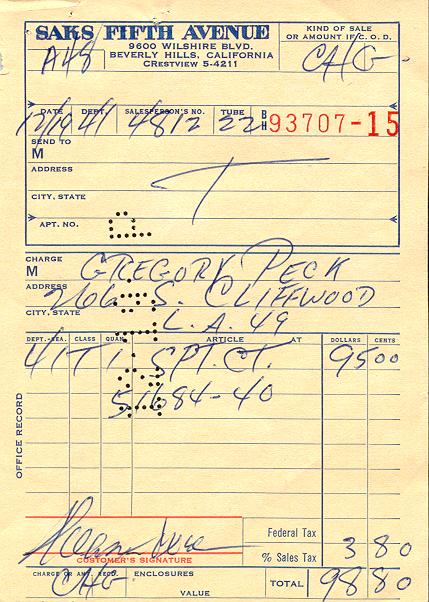 SAKS FIFTH AVENUE
9600 WILSHIRE BLVD.
BEVERLY HILLS, CALIFORNIA
CRESTVIEW 5-4211
KIND OF SALE
OR AMOUNT IF C. O. D.
A48
CHG
DATE DEPT. SALESPERSON'S NO. TUBE
12/19 41 4812 22 BH 93707-15
SEND TO
M
ADDRESS
CITY, STATE
APT. NO.
CHARGE
M GREGORY PECK
ADDRESS 266 S. CLIFFWOOD
CITY, STATE L.A. 49
DEPT.-SEA. CLASS QUAN. ARTICLE AT DOLLARS CENTS
41T 1 SPT. CT. 95 00
51684-40
OFFICE RECORD
Federal Tax
CUSTOMER'S SIGNATURE
% Sales Tax 3 80
CHARGE OR AM'T. RECD. ENCLOSURES
CHG
VALUE
TOTAL 98 80